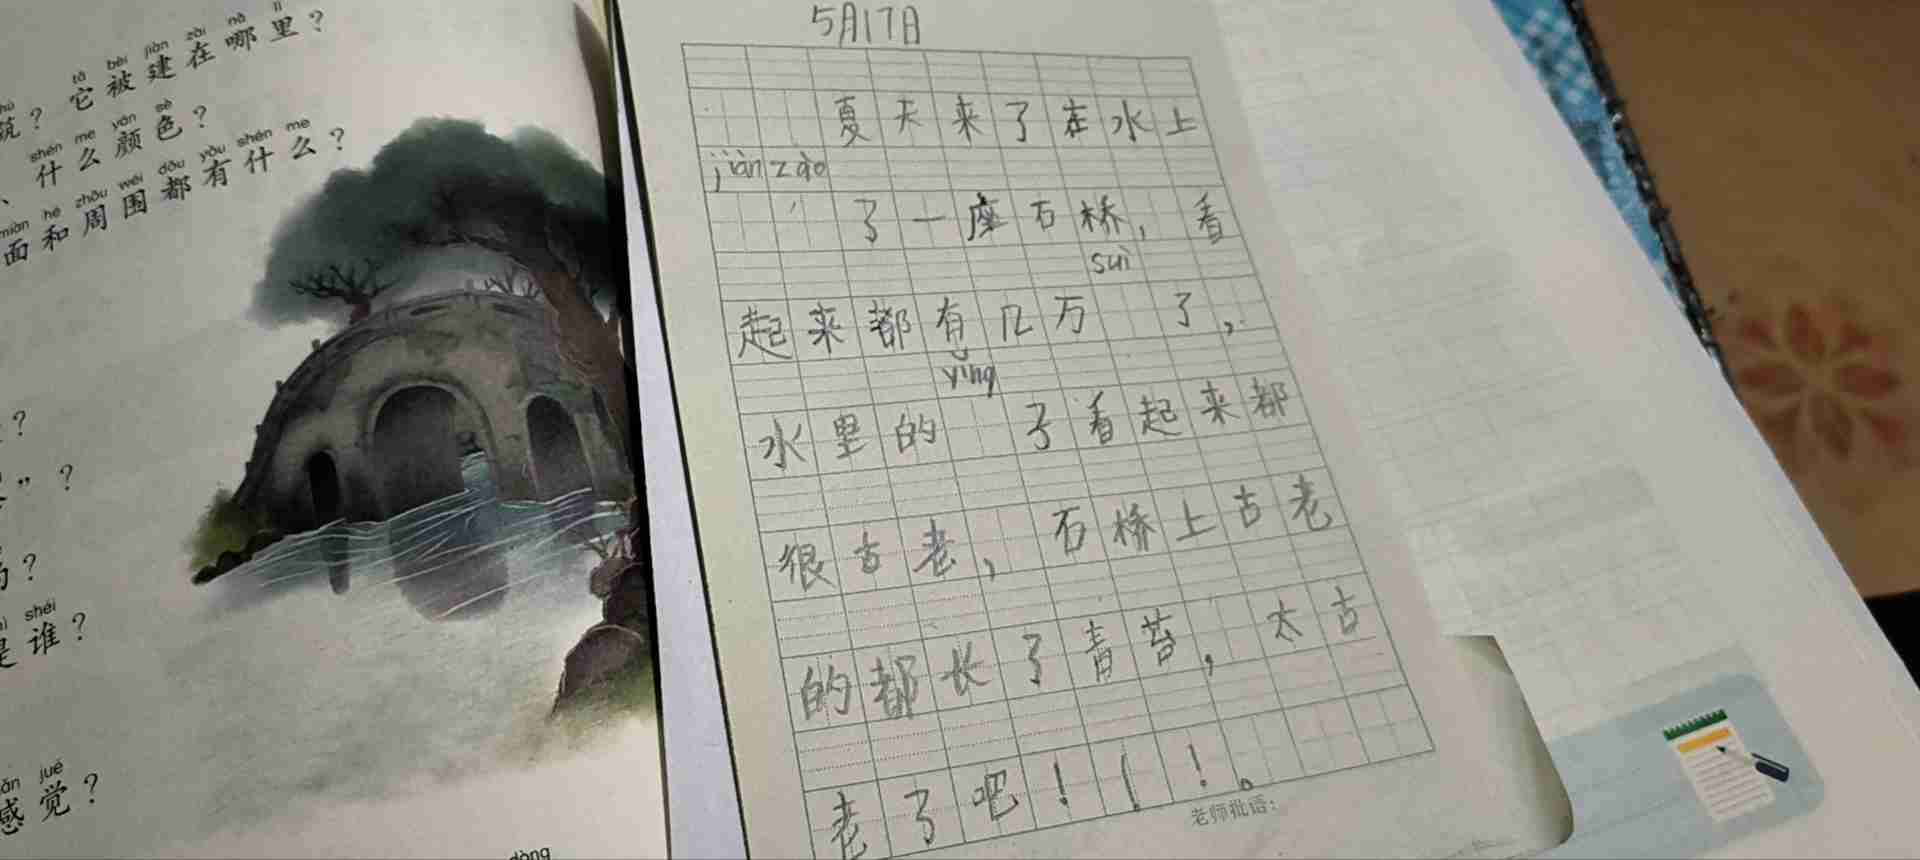 nǎ lǐ
tā bèi jiàn zài
筑？它被建在哪里？
shén me yán sè
、什么颜色？
miàn hé zhōu wéi dōu yǒu shén me
面和周围都有什么？
？
”？
？
shéi
是谁？
jué
感觉？
dòng
5月17日
夏天来了在水上
jiàn zào
了一座石桥，看
suì
起来都有几万 了，
yǐng
水里的 子看起来都
很古老，石桥上古老
的都长了青苔，太古
老了吧！！！。
老师批语：